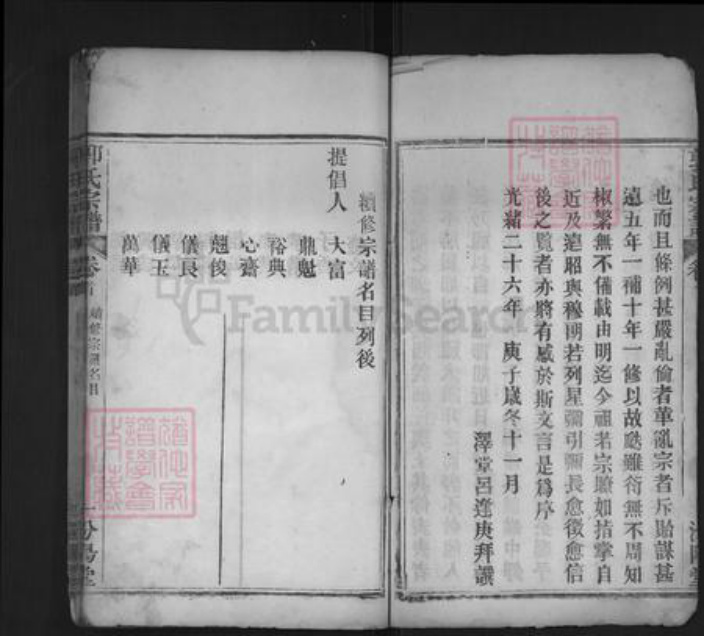 也而且條例甚嚴亂倫者革亂宗者斥貽謀甚
遠五年一補十年一修以故瓞雖衍無不周知
椒繁無不備載由明迄今祖若宗瞭如指掌自
近及遠昭與穆朗若列星彌引彌長愈徵愈信
後之覽者亦將有感於斯文言是爲序
光緒二十六年 庚子歲冬十一月
澤堂呂達庚拜譔
續修宗譜名目列後
提倡人 大富
鼎魁
裕典
心齋
魁俊
儀良
儀玉
萬華
郭氏宗譜 卷首 續修宗譜名目 一 汾陽堂
FamilySearch